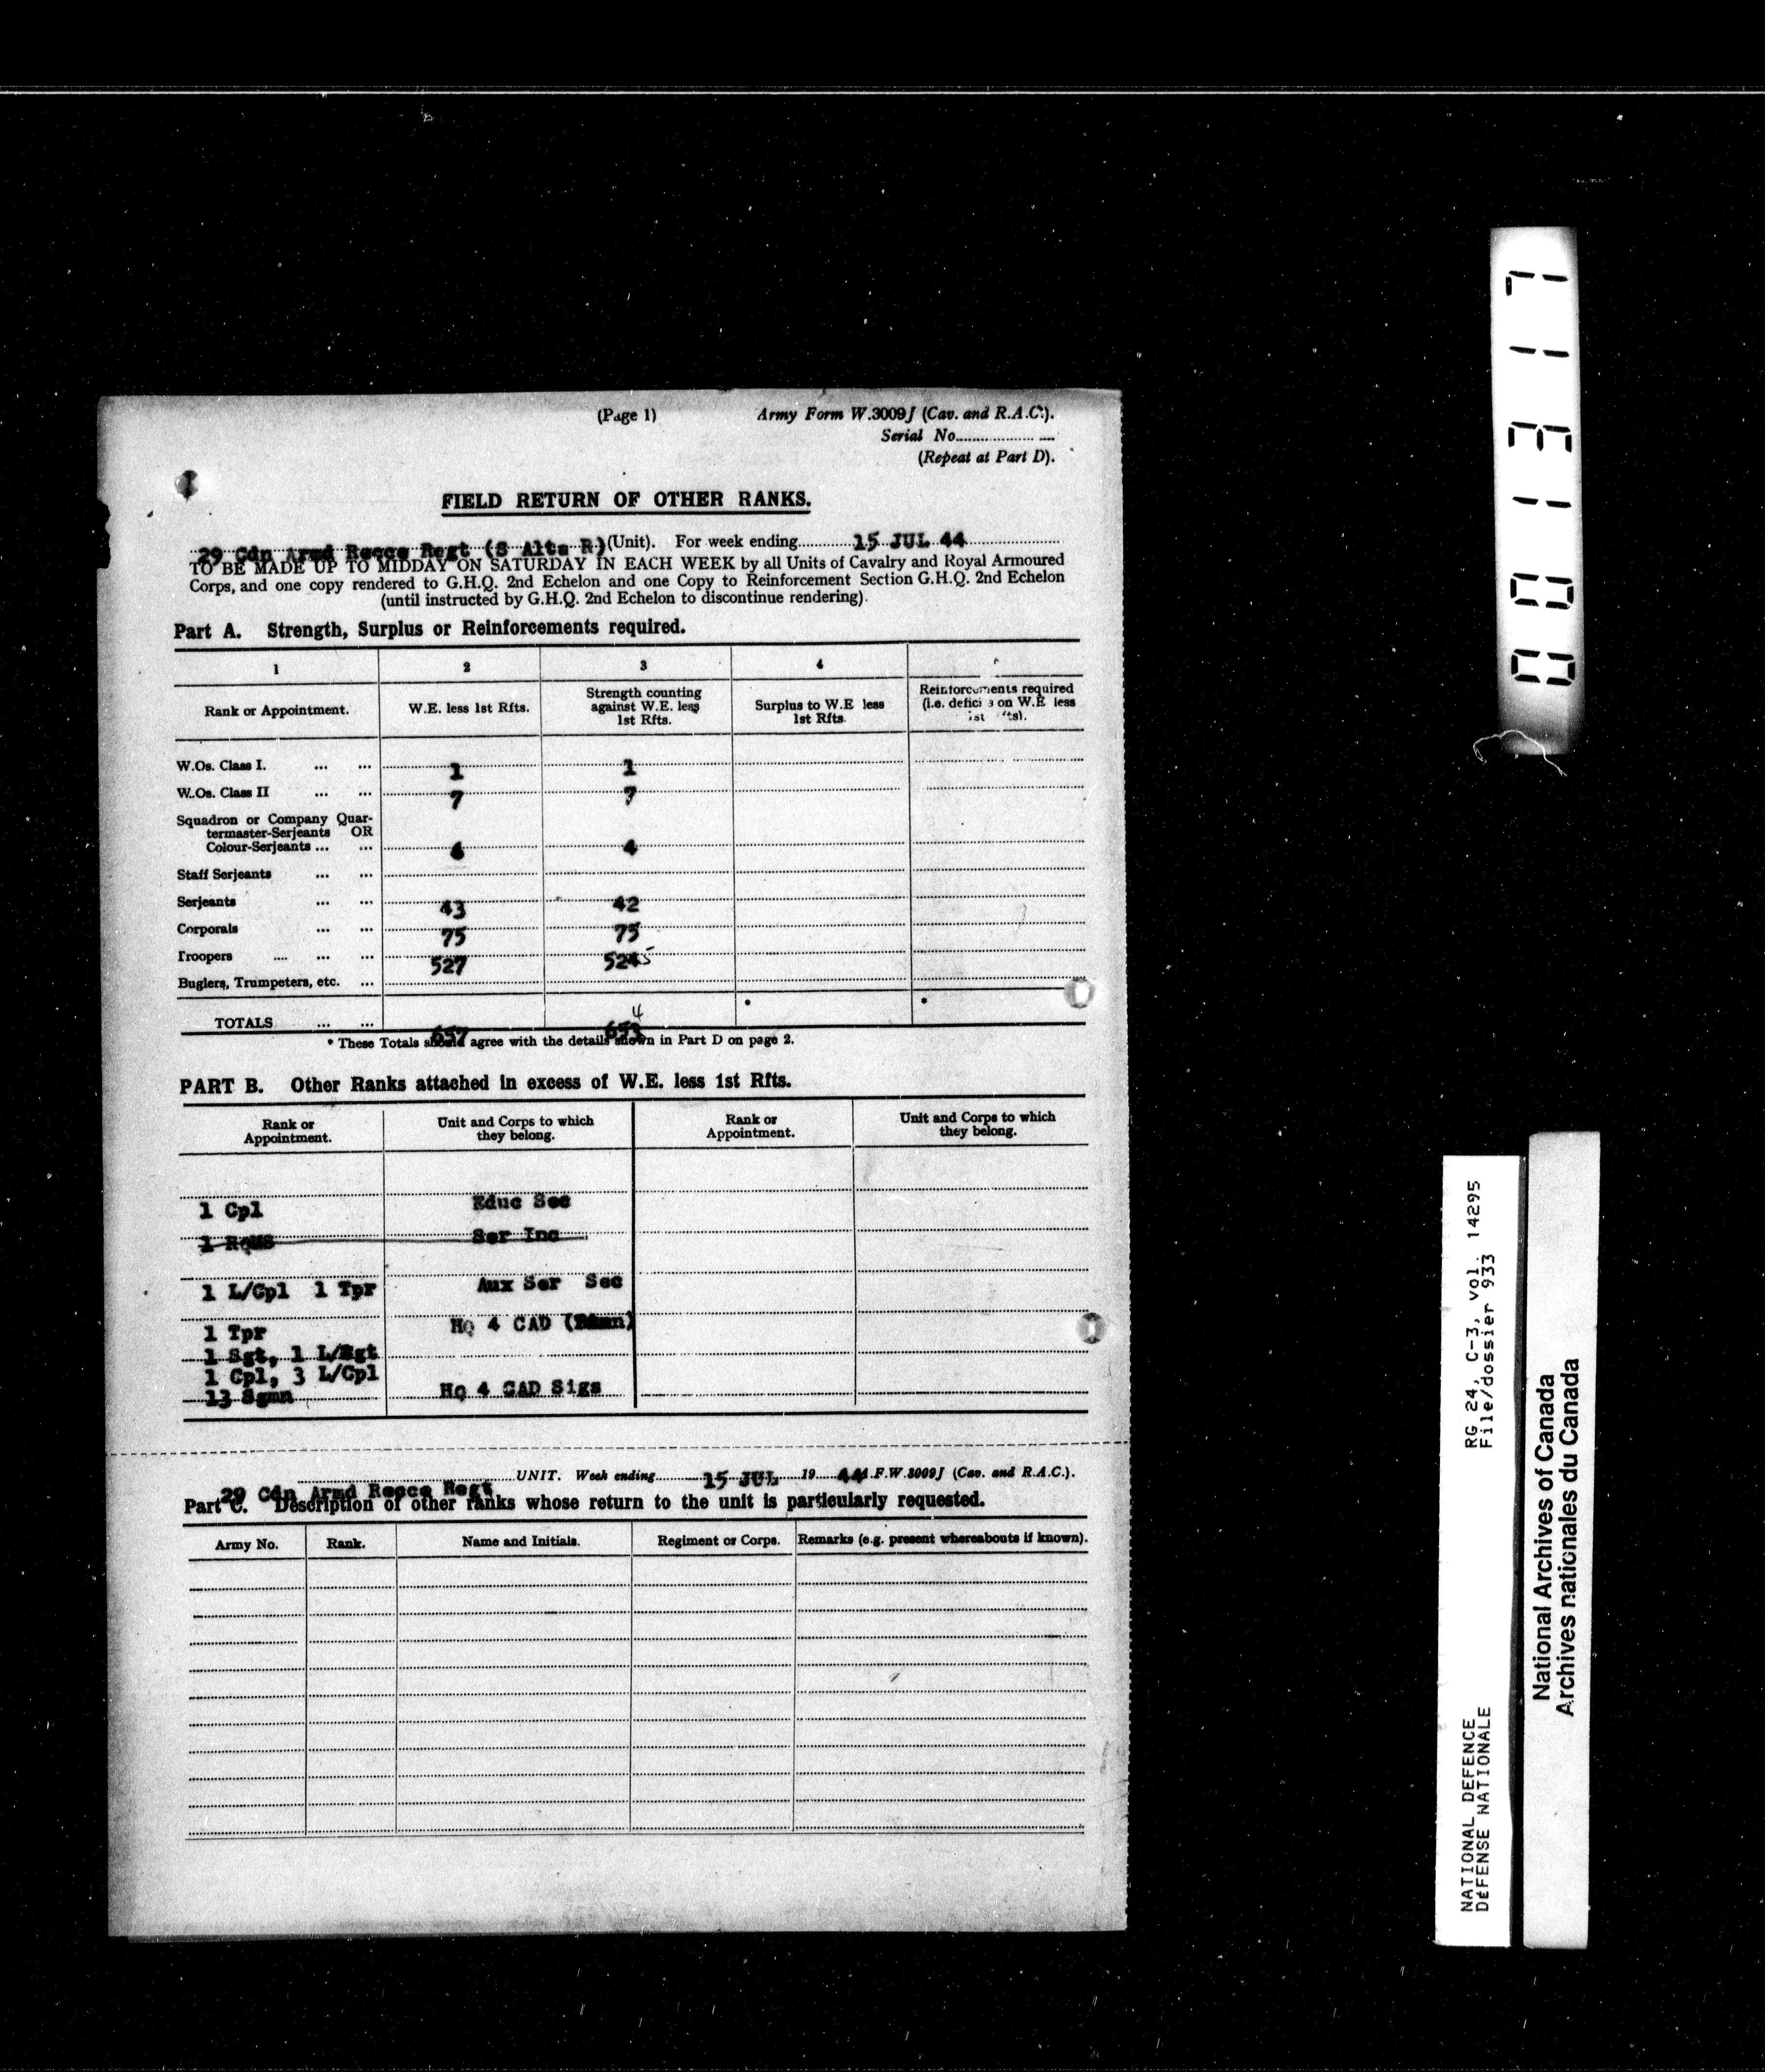 (Page 1) Army Form W.3009J (Cav. and R.A.C.).
Serial No.
(Repeat at Part D).
FIELD RETURN OF OTHER RANKS.
29 Cdn Armd Recce Regt (S Alta R) (Unit). For week ending 15 JUL 44
TO BE MADE UP TO MIDDAY ON SATURDAY IN EACH WEEK by all Units of Cavalry and Royal Armoured
Corps, and one copy rendered to G.H.Q. 2nd Echelon and one Copy to Reinforcement Section G.H.Q. 2nd Echelon
(until instructed by G.H.Q. 2nd Echelon to discontinue rendering).
Part A. Strength, Surplus or Reinforcements required.
1 2 3 4
Rank or Appointment. W.E. less 1st Rfts. Strength counting against W.E. less 1st Rfts. Surplus to W.E less 1st Rfts. Reinforcements required (i.e. on W.E less
W.Os. Class I. ... ... 1 1
W.Os. Class II ... ... 7 7
Squadron or Company Quar-
termaster-Serjeants OR
Colour-Serjeants ... ... 4
Staff Serjeants ... ...
Serjeants ... ... 43 42
Corporals ... ... 75 75
Troopers ... ... ... 527 524 5
Buglers, Trumpeters, etc. ...
4
TOTALS ... ... 657 653
* These Totals should agree with the details shown in Part D on page 2.
PART B. Other Ranks attached in excess of W.E. less 1st Rfts.
Rank or Appointment. Unit and Corps to which they belong. Rank or Appointment. Unit and Corps to which they belong.
1 Cpl Educ Sec
1 RQMS Ser Inc
1 L/Cpl 1 Tpr Aux Ser Sec
1 Tpr HQ 4 CAD
1 Sgt, 1 L/Sgt
1 Cpl, 3 L/Cpl
13 Sgmn HQ 4 CAD Sigs
29 Cdn Armd Recce Regt UNIT. Week ending 15 JUL 19 44 A.F.W.3009J (Cav. and R.A.C.).
Part C. Description of other ranks whose return to the unit is particularly requested.
Army No. Rank. Name and Initials. Regiment or Corps. Remarks (e.g. present whereabouts if known).
001317
RG 24, C-3, vol. 14295
File/dossier 933
NATIONAL DEFENCE
DÉFENSE NATIONALE
National Archives of Canada
Archives nationales du Canada